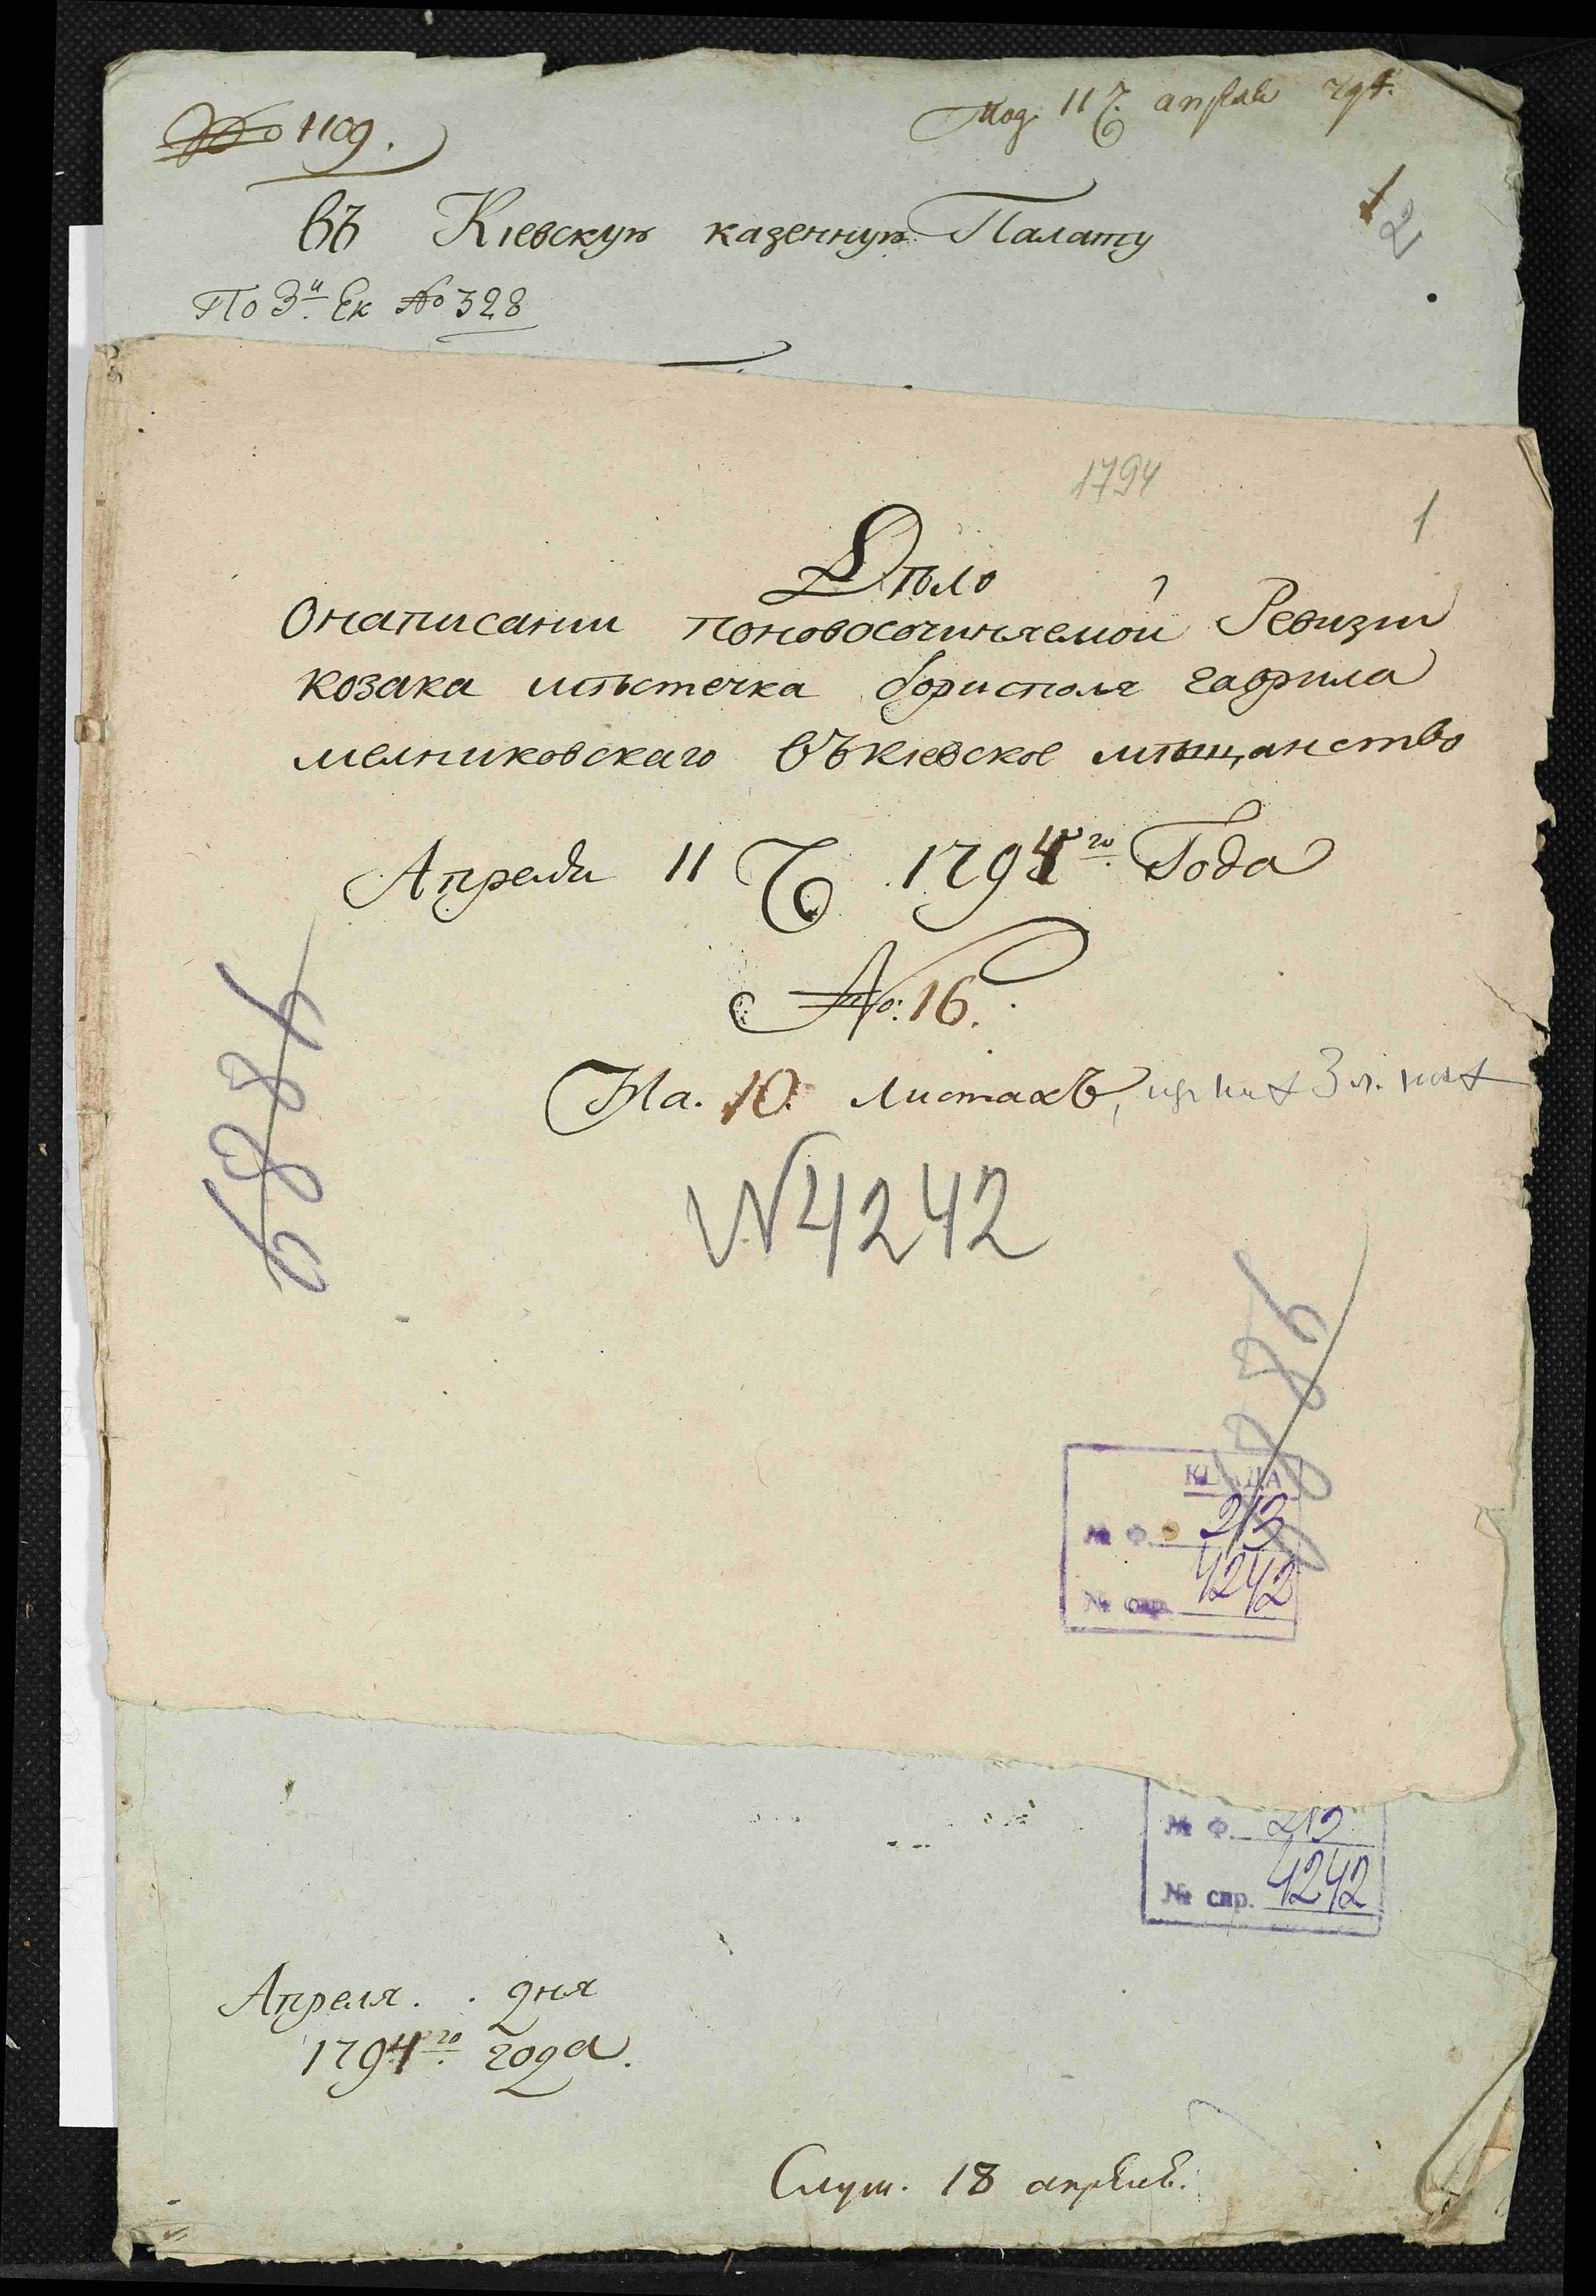 № 1109.
Под. 11 ч. апреля 794.
1
2
Въ Кіевскую казенную Палату
По 3й Ек № 328
1794
1
Дѣло
Онаписании поновосочиняемой Ревизии
козака мѣстечка бориспола гаврила
мелниковскаго въ кіевское мѣщанство
Апреля 11 Ч 1794го Года
№: 16.
На. 10. листахъ,
№4242
№ Ф. 213
4242
№ спр.
№ Ф. 213
№ спр. 4242
Апреля . . дня
1794го года.
Слуш. 18 апреля.